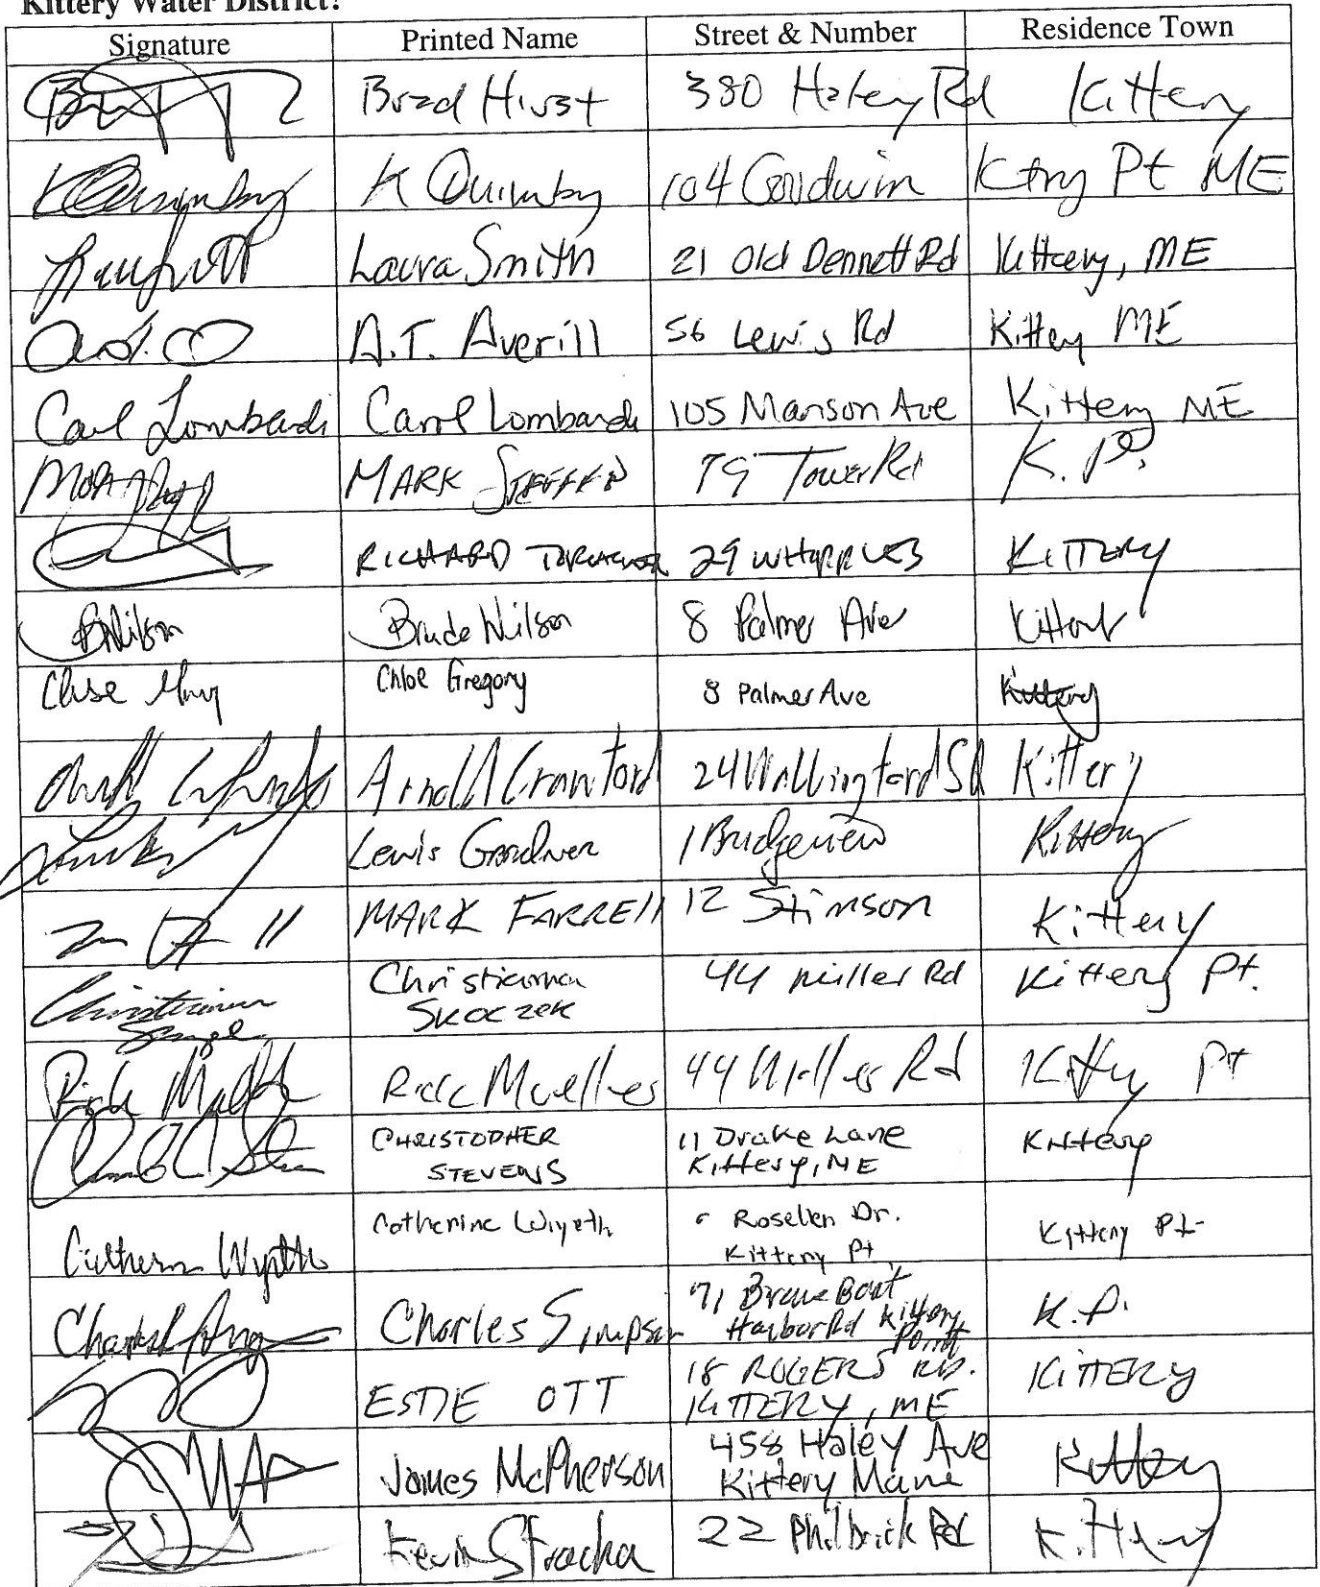 Kittery Water District?
Signature Printed Name Street & Number Residence Town
Brad Hirst 380 Haley Rd Kittery
K Quimby K Quimby 104 Goodwin Ktry Pt ME
Laura Smith 21 Old Dennett Rd Kittery, ME
A.T. Averill 56 Lewis Rd Kittery ME
Carol Lombardi Carol Lombardi 105 Manson Ave Kittery ME
MARK 79 Tower Rd K. P.
RICHARD 29 KITTERY
BWilson Wilson 8 Palmer Ave
Chloe Gregory 8 Palmer Ave Kittery
Arnold Crawford 24 Wallingford Sq Kittery
Lewis Gardner 1 Bridgeview Kittery
MARK FARRELL 12 Stimson Kittery
Christianna 44 Miller Rd Kittery Pt.
SKOCZEK
Rick Mueller 44 Miller Rd Kittery Pt
CHRISTOPHER 11 Drake Lane Kittery
STEVENS Kittery, ME
Catherine Wyeth Catherine Wyeth Rosellen Dr. Kittery Pt
Kittery Pt
Charles Simpson 71 Brave Boat K.P.
Harbor Rd Kittery
Point
ESTIE OTT 18 ROGERS RD. KITTERY
KITTERY, ME
James McPherson 458 Haley Ave Kittery
Kittery Maine
Kevin Stracha 22 Philbrick Rd Kittery